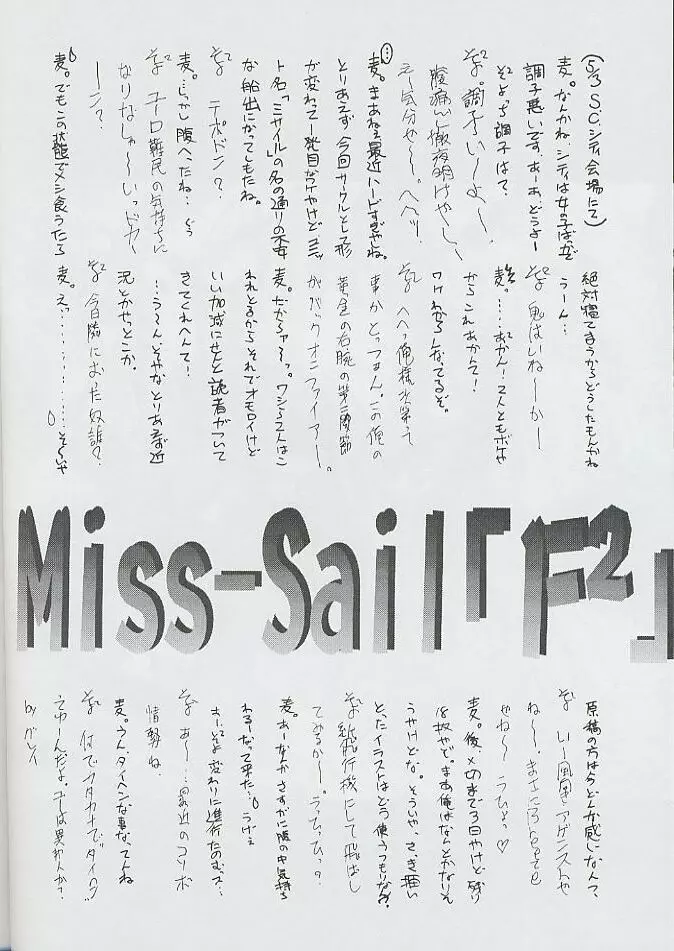 (5/3 S.C.シティ会場にて)
麦。なんかね、シティは女の子ばっかで
調子悪いです。あーあ、どうよー
そよっち調子は?
そよ2。調子い〜よ〜、
腹痛いし徹夜明けやし、
え〜気分せ〜。へへっ!
麦。まあねぇ最近ハードすぎやね。
とりあえず今回サークルとして形
が変わって一発目なワケやけど、
ト名「ミサイル」の名の通りの不安
な船出になってしもたね。
そよ2 テポドン?
麦。…しかし腹へったね…
そよ2 ユーロ難民の気持ちに
なりなしゃ〜いっドカ〜
ーン?
麦。でもこの状態でメシ食うたら
絶対寝てまうからどうしたもんかね
うーん…
そよ2 鬼はいね〜か〜
麦。……あかん!2人ともボケや
からこれあかんて!
ワケわからんなってるぞ。
そよ2 へへっ俺様に笑って
事かとっつぁん。この俺の
黄金の右腕の第三関節
がバックオニファイアー。
麦。だからァ〜っ。ワシら2人はこ
われとるからそれでオモロイけど
いい加減にせんと読者がついて
きてくれへんて!
…う〜んそやなとりあえず近
況とかやっとこか。
そよ2 今日隣におった奴誰?
麦。え……………………そ〜いや
Miss-Sail「F2」
原稿の方はどんな感じなん?
そよ2 い〜風自アゲンストや
ね〜、まさにBreeze
やね〜 うひょっ♡
麦。後、〆切まで3日やけど残り
18枚やで。まあ俺はなんとかなりそ
うやけどな。そういや、さっき描い
とったイラストはどう使うつもりなん?
そよ2 紙飛行機にして飛ばし
てみるか〜。うひっひっ?
麦。あーなんかさすがに腹の中気持ち
わるーなって来た…。うげぇ
おーいそよ変わりに進行たのむっス。
そよ2 あ〜…最近のコソボ
情勢ね、
麦。うん、タイヘンな事なってんね
そよ2 何でカタカナで「タイヘン」
てゆーんだよ。
by ガレイ